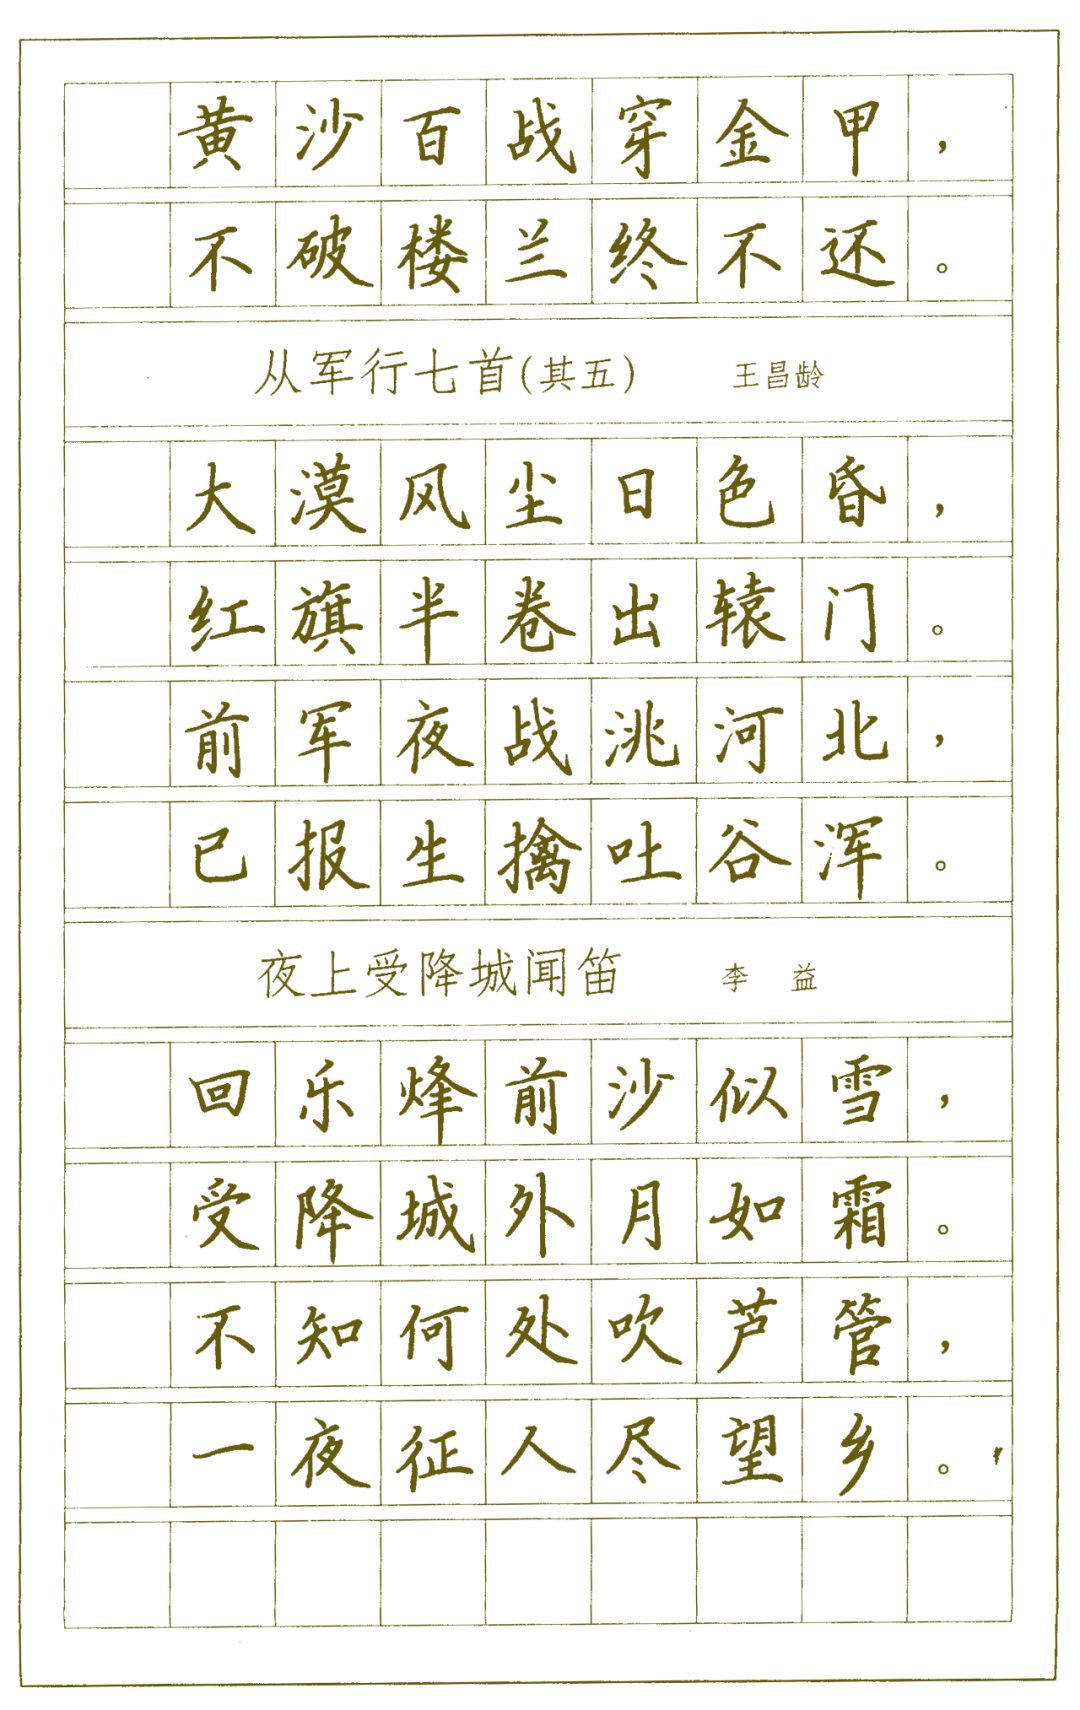 黄沙百战穿金甲，
不破楼兰终不还。
从军行七首(其五) 王昌龄
大漠风尘日色昏，
红旗半卷出辕门。
前军夜战洮河北，
已报生擒吐谷浑。
夜上受降城闻笛 李益
回乐烽前沙似雪，
受降城外月如霜。
不知何处吹芦管，
一夜征人尽望乡。